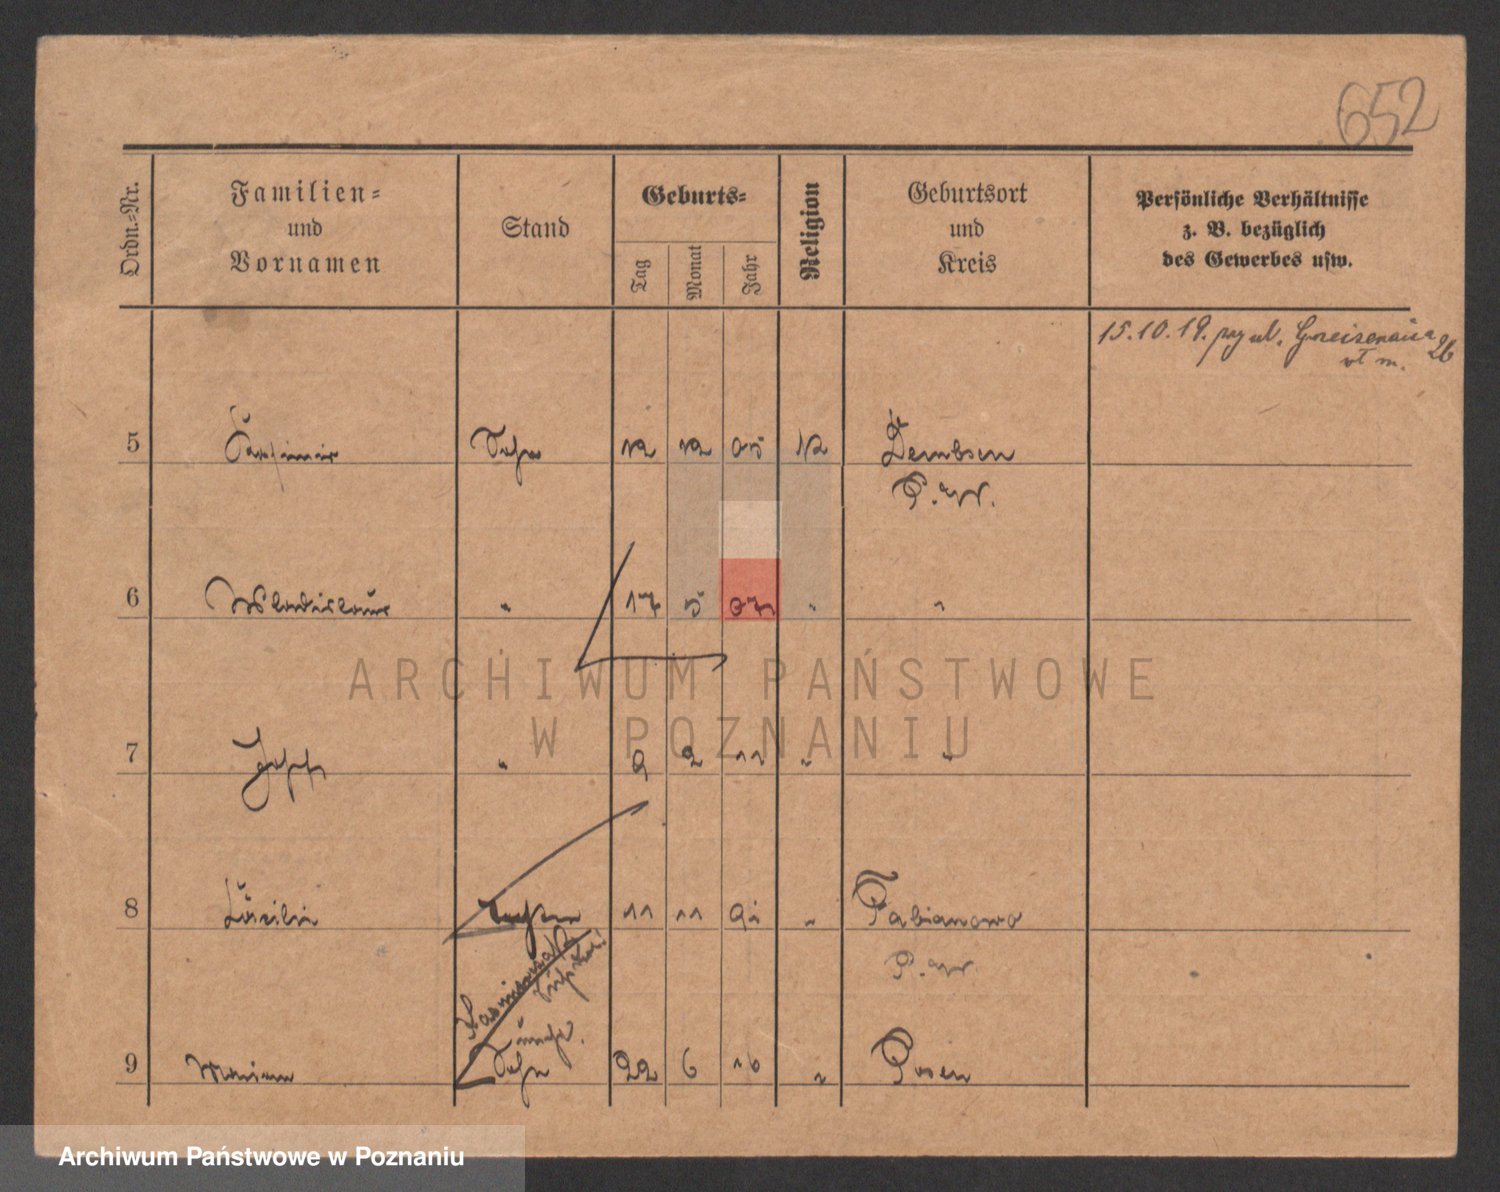 652
Ordn.-Nr.
Familien-
und
Vornamen
Stand
Geburts-
Tag
Monat
Jahr
Religion
Geburtsort
und
Kreis
Persönliche Verhältnisse
z. B. bezüglich
des Gewerbes usw.
15.10.19. ul. Gneisenaua 26
5 Kasimir Sohn 12 12 05 Dembsen
P. W.
6 Wladislaus " 17 5 07 " "
ARCHIWUM PAŃSTWOWE
W POZNANIU
7 Joseph " 2 2 11 " "
8 Cäcilie Tochter 11 11 "
Fabianowo
P. W.
unehl.
9 Marian Sohn 22 6 16 " Posen
Archiwum Państwowe w Poznaniu